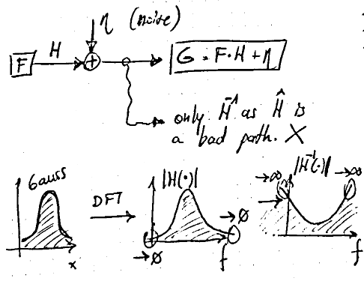 η (noise)
F H + G = F·H + η
only H⁻¹ as Ĥ is
a bad path. X
Gauss DFT |H(·)| →∅ →∞ |H⁻¹(·)| →∞
x →∅ f f